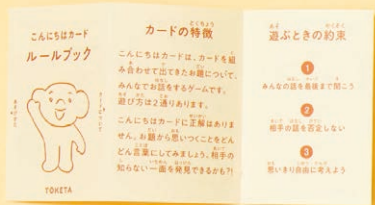 こんにちはカード
ルールブック
YOKETA
カードの特徴
とくちょう
こんにちはカードは、カードを組
み合わせて出てきたお題について、
みんなでお話をするゲームです。
遊び方は2通りあります。
こんにちはカードに正解はありま
せん。お題から思いつくことをどん
どん言葉にしてみましょう。相手の
知らない一面を発見できるかも?!
遊ぶときの約束
あそ
やくそく
1
みんなの話を最後まで聞こう
2
相手の話を否定しない
3
思いきり自由に考えよう